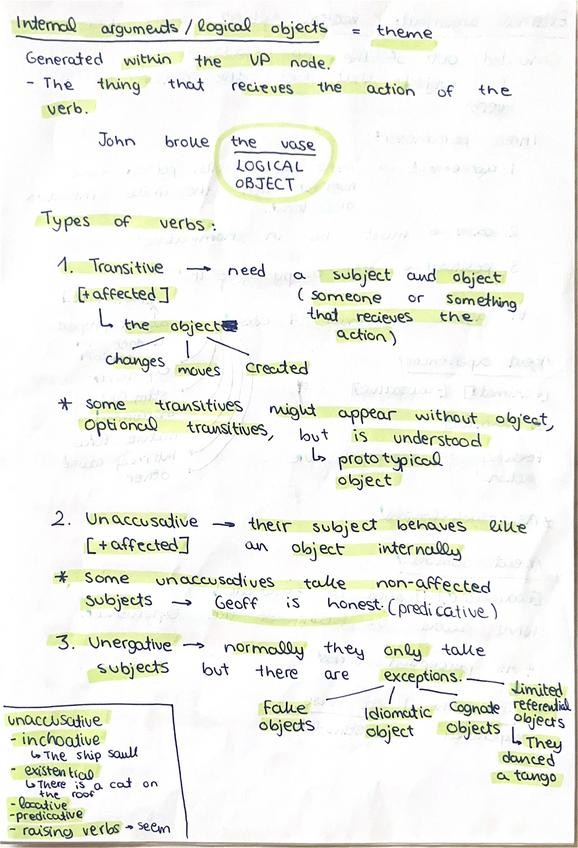 Internal arguments/logical objects = theme
Generated within the VP node.
- The thing that recieves the action of the
verb.
John broke the vase
LOGICAL
OBJECT
Types of verbs:
1. Transitive → need a subject and object
[+affected] (someone or something
that recieves the
action)
↳ the object
changes moves created
* some transitives might appear without object,
Optional transitives, but is understood
↳ prototypical
object
2. Unaccusative → their subject behaves like
[+affected] an object internally
* some unaccusatives take non-affected
subjects → Geoff is honest. (predicative)
3. Unergative → normally they only take
subjects but there are exceptions.
Fake
objects
Idiomatic
object
Cognate
objects
Limited
referential
objects
↳ They
danced
a tango
unaccusative
- inchoative
↳ The ship sank
- existential
↳ There is a cat on
the roof
- locative
- predicative
- raising verbs → seem